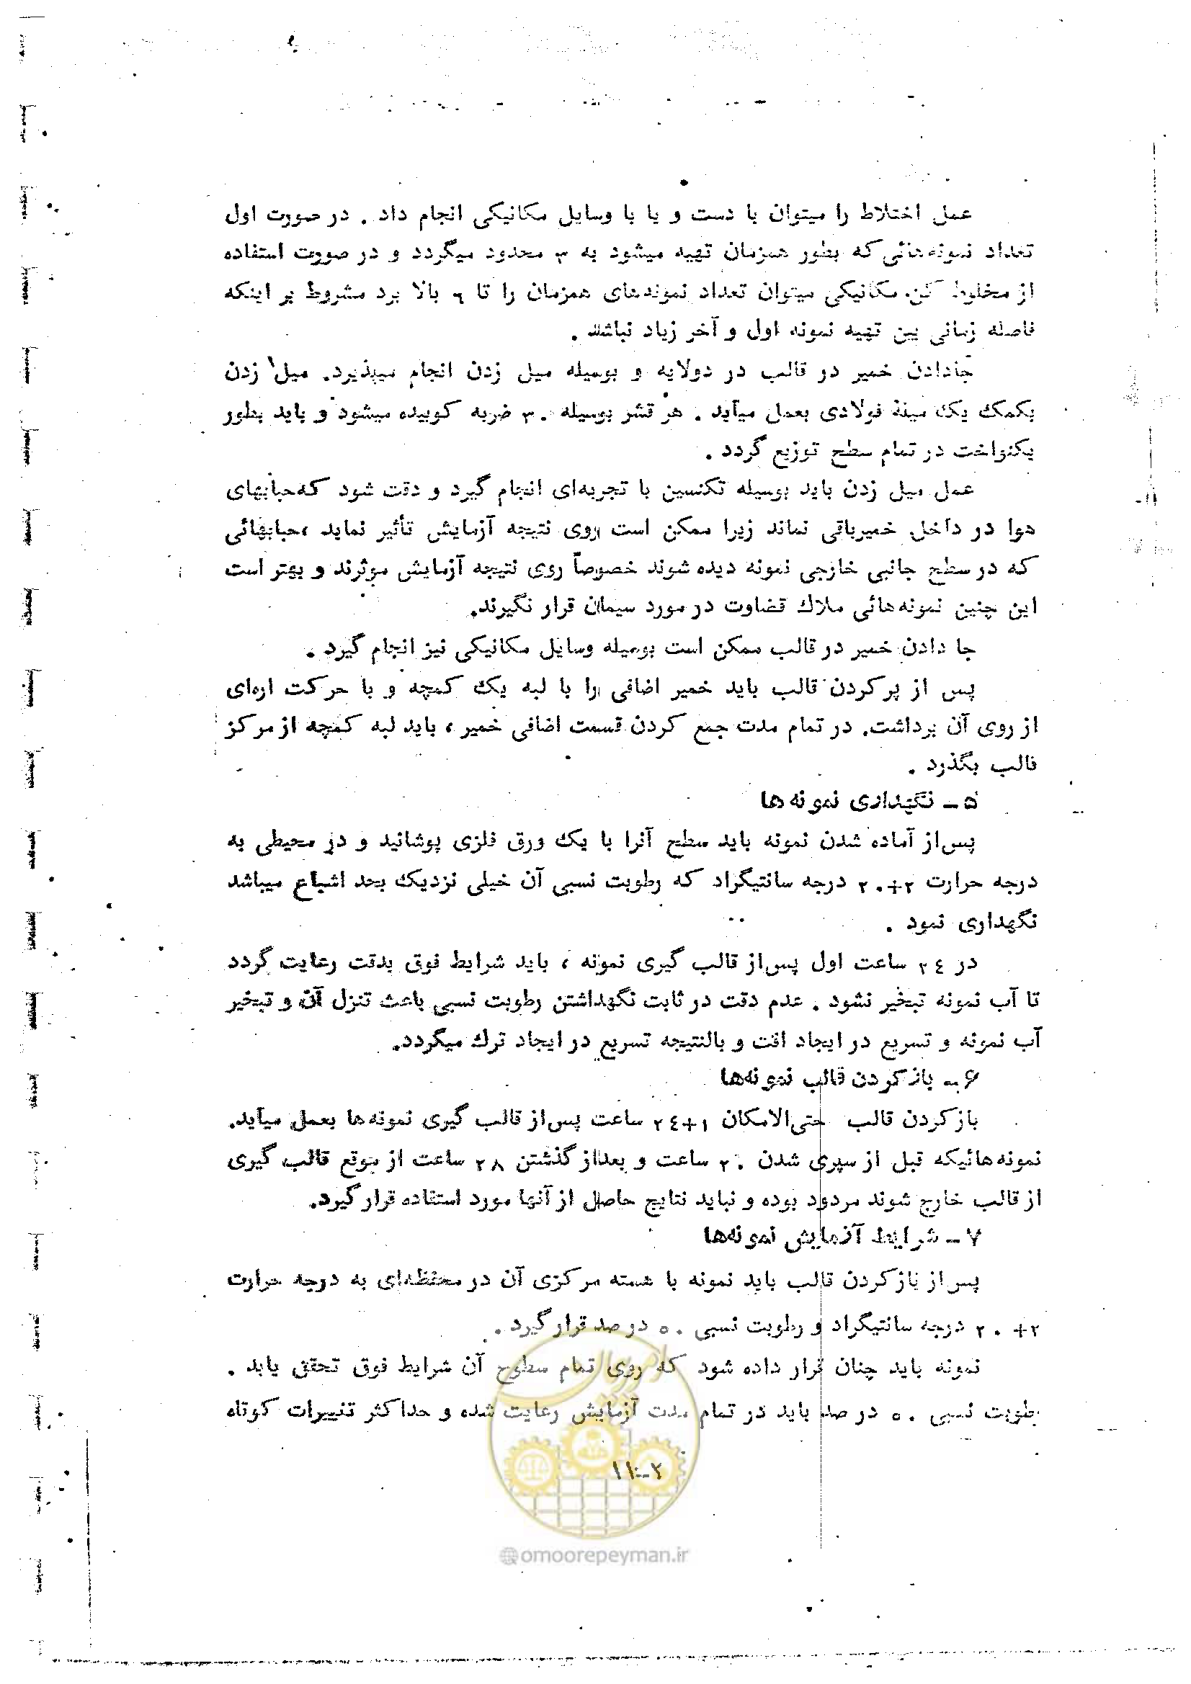 عمل اختلاط را میتوان با دست و یا با وسایل مکانیکی انجام داد . در صورت اول
تعداد نمونه‌هائی که بطور همزمان تهیه میشود به ۳ محدود میگردد و در صورت استفاده
از مخلوط کن مکانیکی میتوان تعداد نمونه‌های همزمان را تا ۶ بالا برد مشروط بر اینکه
فاصله زمانی بین تهیه نمونه اول و آخر زیاد نباشد .
جادادن خمیر در قالب در دولایه و بوسیله میل زدن انجام میپذیرد. میل زدن
بکمک یک میلهٔ فولادی بعمل میآید . هر قشر بوسیله ۳۰ ضربه کوبیده میشود و باید بطور
یکنواخت در تمام سطح توزیع گردد .
عمل میل زدن باید بوسیله تکنسین با تجربه‌ای انجام گیرد و دقت شود که حبابهای
هوا در داخل خمیرباقی نماند زیرا ممکن است روی نتیجه آزمایش تأثیر نماید ، حبابهائی
که در سطح جانبی خارجی نمونه دیده شوند خصوصاً روی نتیجه آزمایش موثرند و بهتر است
این چنین نمونه‌هائی ملاک قضاوت در مورد سیمان قرار نگیرند.
جا دادن خمیر در قالب ممکن است بوسیله وسایل مکانیکی نیز انجام گیرد .
پس از پرکردن قالب باید خمیر اضافی را با لبه یک کمچه و با حرکت اره‌ای
از روی آن برداشت. در تمام مدت جمع کردن قسمت اضافی خمیر ، باید لبه کمچه از مرکز
قالب بگذرد .
۵ ـ نگهداری نمونه‌ها
پس‌از آماده شدن نمونه باید سطح آنرا با یک ورق فلزی پوشانید و در محیطی به
درجه حرارت ۲+۲۰ درجه سانتیگراد که رطوبت نسبی آن خیلی نزدیک بحد اشباع میباشد
نگهداری نمود .
در ۲۴ ساعت اول پس‌از قالب گیری نمونه ، باید شرایط فوق بدقت رعایت گردد
تا آب نمونه تبخیر نشود . عدم دقت در ثابت نگهداشتن رطوبت نسبی باعث تنزل آن و تبخیر
آب نمونه و تسریع در ایجاد افت و بالنتیجه تسریع در ایجاد ترک میگردد.
۶ ـ بازکردن قالب نمونه‌ها
بازکردن قالب حتی‌الامکان ۱+۲۴ ساعت پس‌از قالب گیری نمونه‌ها بعمل میآید.
نمونه‌هائیکه قبل از سپری شدن ۲۰ ساعت و بعداز گذشتن ۲۸ ساعت از موقع قالب گیری
از قالب خارج شوند مردود بوده و نباید نتایج حاصل از آنها مورد استفاده قرار گیرد.
۷ ـ شرایط آزمایش نمونه‌ها
پس‌از بازکردن قالب باید نمونه با هسته مرکزی آن در محفظه‌ای به درجه حرارت
۲+ ۲۰ درجه سانتیگراد و رطوبت نسبی ۵۰ درصد قرار گیرد .
نمونه باید چنان قرار داده شود که روی تمام سطوح آن شرایط فوق تحقق یابد .
رطوبت نسبی ۵۰ درصد باید در تمام مدت آزمایش رعایت شده و حداکثر تغییرات کوتاه
۱۱-۲
@omoorepeyman.ir